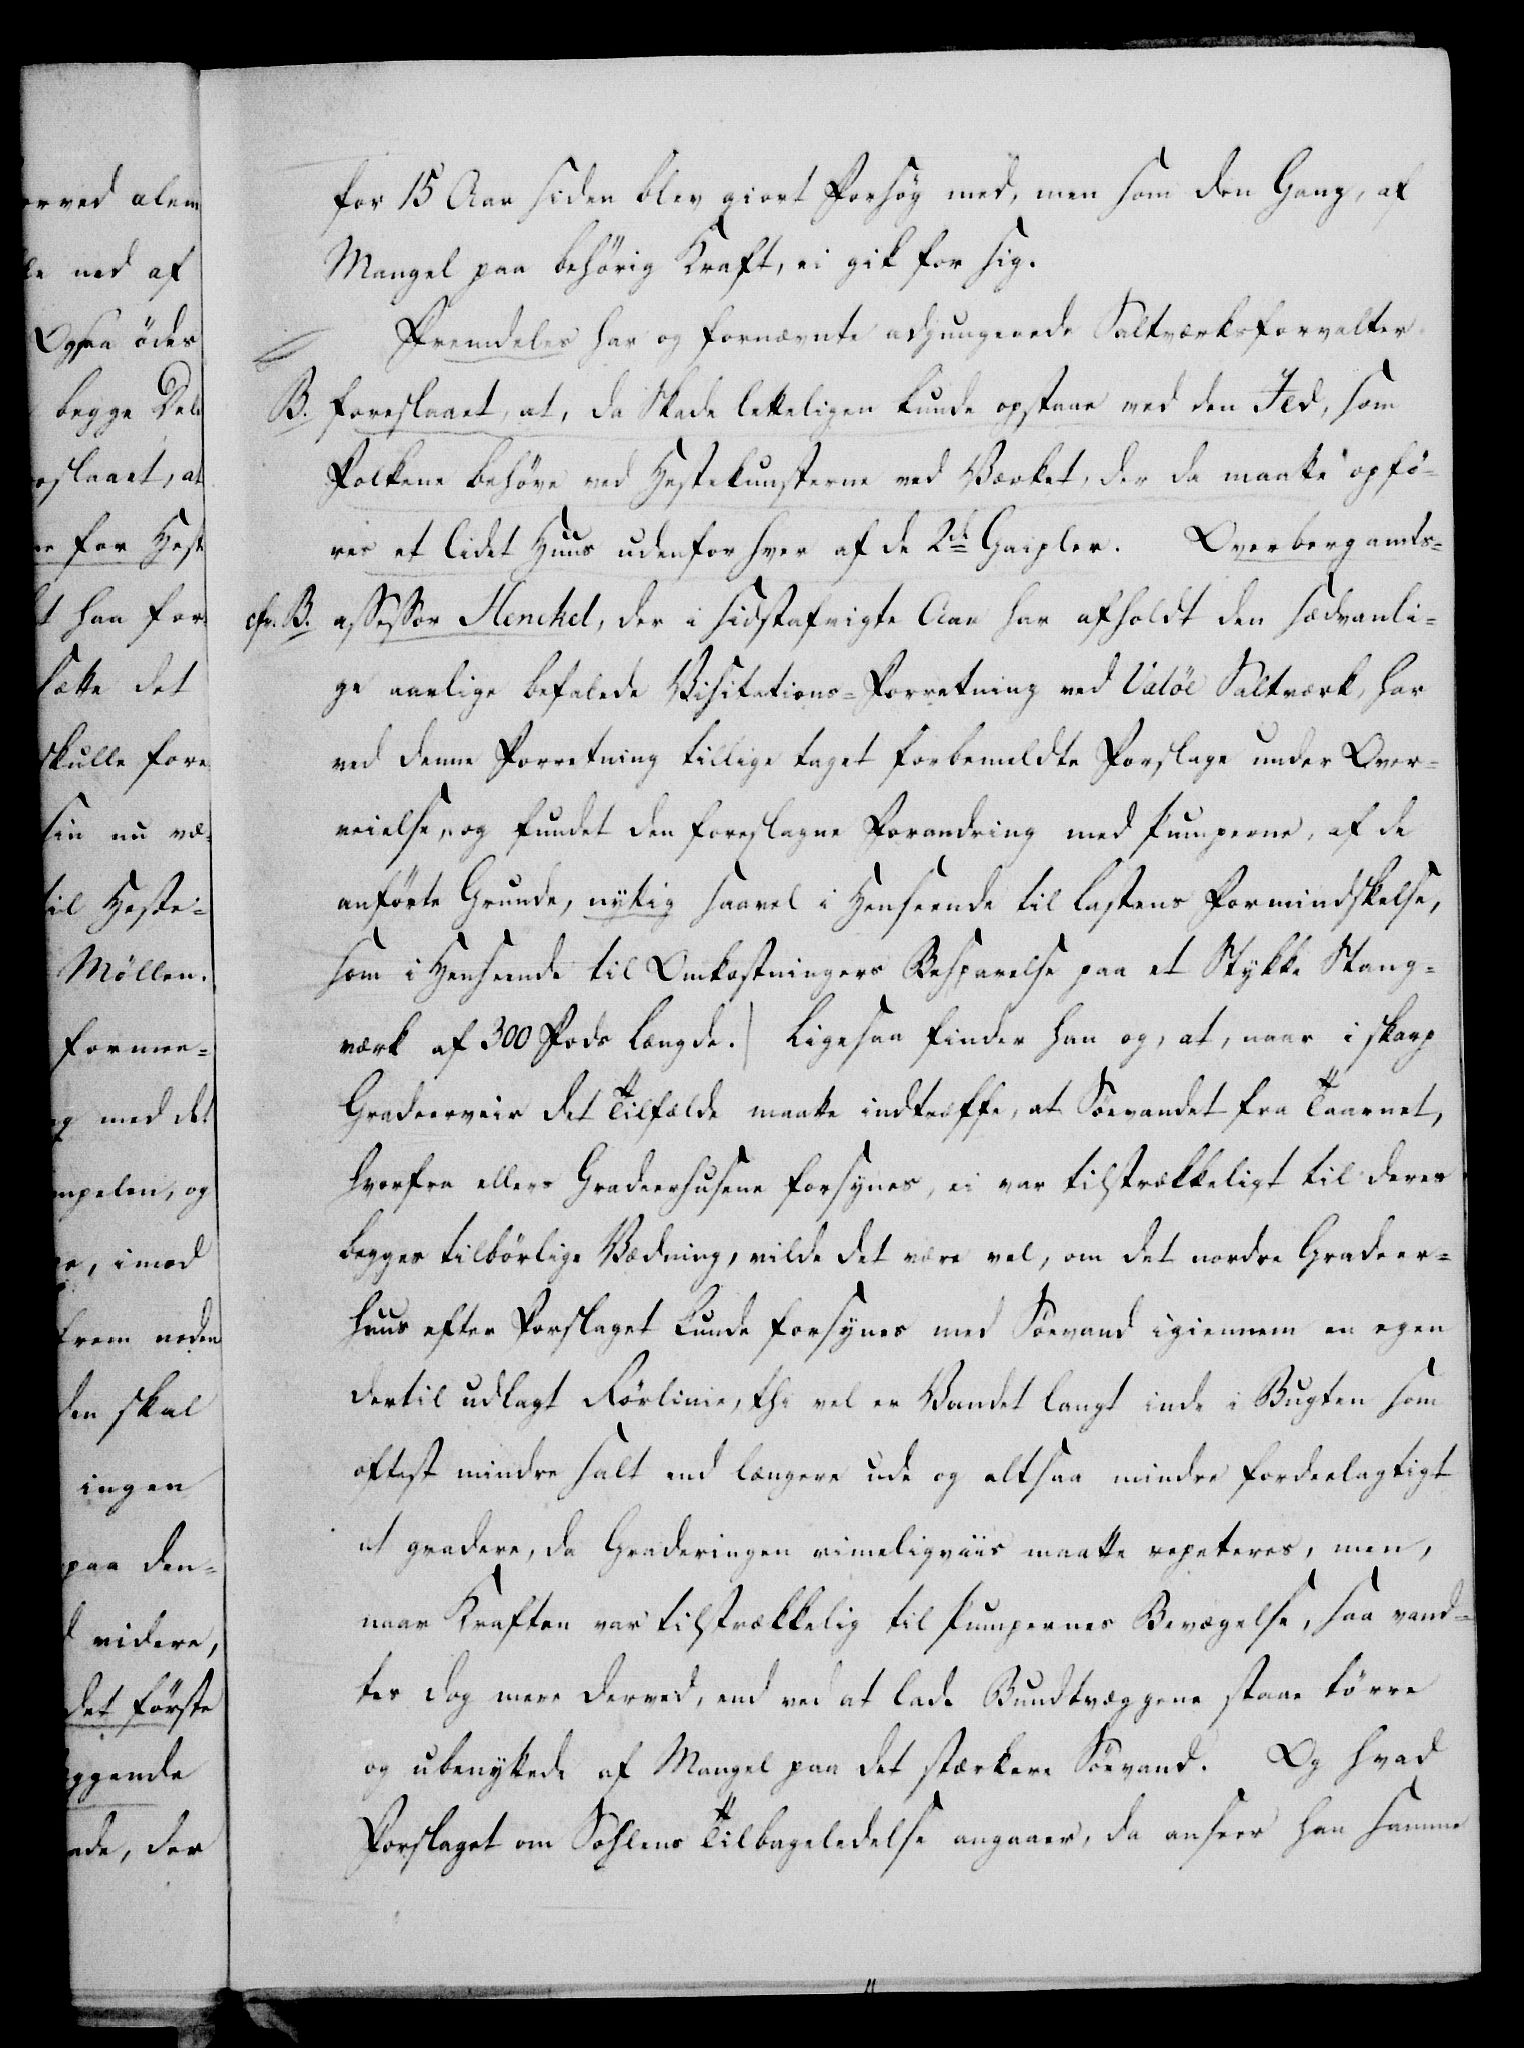 erved alene
le ned af
Ogsaa ödes
begge Dele
oslaaet, at
re for Hest
t han for
sætte det
skulle fore
sin nu væ-
til Heste-
Möllen.
formee-
og med det
mpelen, og
re, imod
frem neden
den skal
ingen
paa den-
d videre,
det förste
ggende
ade, der
for 15 Aar siden blev giort Forsög med, men som den Gang, af
Mangel paa behörig Kraft, ei gik for sig.
Fremdeles har og fornævnte adjungerede Saltværksforvalter
B. foreslaaet, at, da Skade letteligen kunde opstaae ved den Ild, som
Folkene behöve ved Hestekunsterne ved Værket, der da maatte opfö-
res et lidet Huus udenfor hver af de 2de Gaipler. Overbergamts-
cfr. B. assessor Henckel, der i sidstafvigte Aar har afholdt den sædvanli-
ge aarlige befalede Visitations-Forretning ved Valöe Saltværk, har
ved denne Forretning tillige taget forbemeldte Forslage under Over-
veielse, og fundet den foreslagne Forandring med Pumperne, af de
anförte Grunde, nyttig saavel i Henseende til Lastens Formindskelse,
som i Henseende til Omkostningers Besparelse paa et Stykke Stang-
værk af 300 Fods Længde. | Ligesaa finder han og, at, naar i skarp
Gradeerveir det Tilfælde maatte indtræffe, at Söevandet fra Taarnet,
hvorfra ellers Gradeerhusene forsynes, ei var tilstrækkeligt til deres
begges tilbörlige Vædning, vilde det være vel, om det nordre Gradeer-
huus efter Forslaget kunde forsynes med Söevand igiennem en egen
dertil udlagt Rörlinie, thi vel er Vandet langt inde i Bugten som
oftest mindre salt end længere ude og altsaa mindre fordeelagtigt
at gradere, da Graderingen rimeligviis maatte repeteres, men,
naar Kraften var tilstrækkelig til Pumpernes Bevægelse, saa vand-
tes dog mere derved, end ved at lade Bundtvæggene staae törre
og ubenyttede af Mangel paa det stærkere Söevand. Og hvad
Forslaget om Sohlens Tilbageledelse angaaer, da anseer han samme